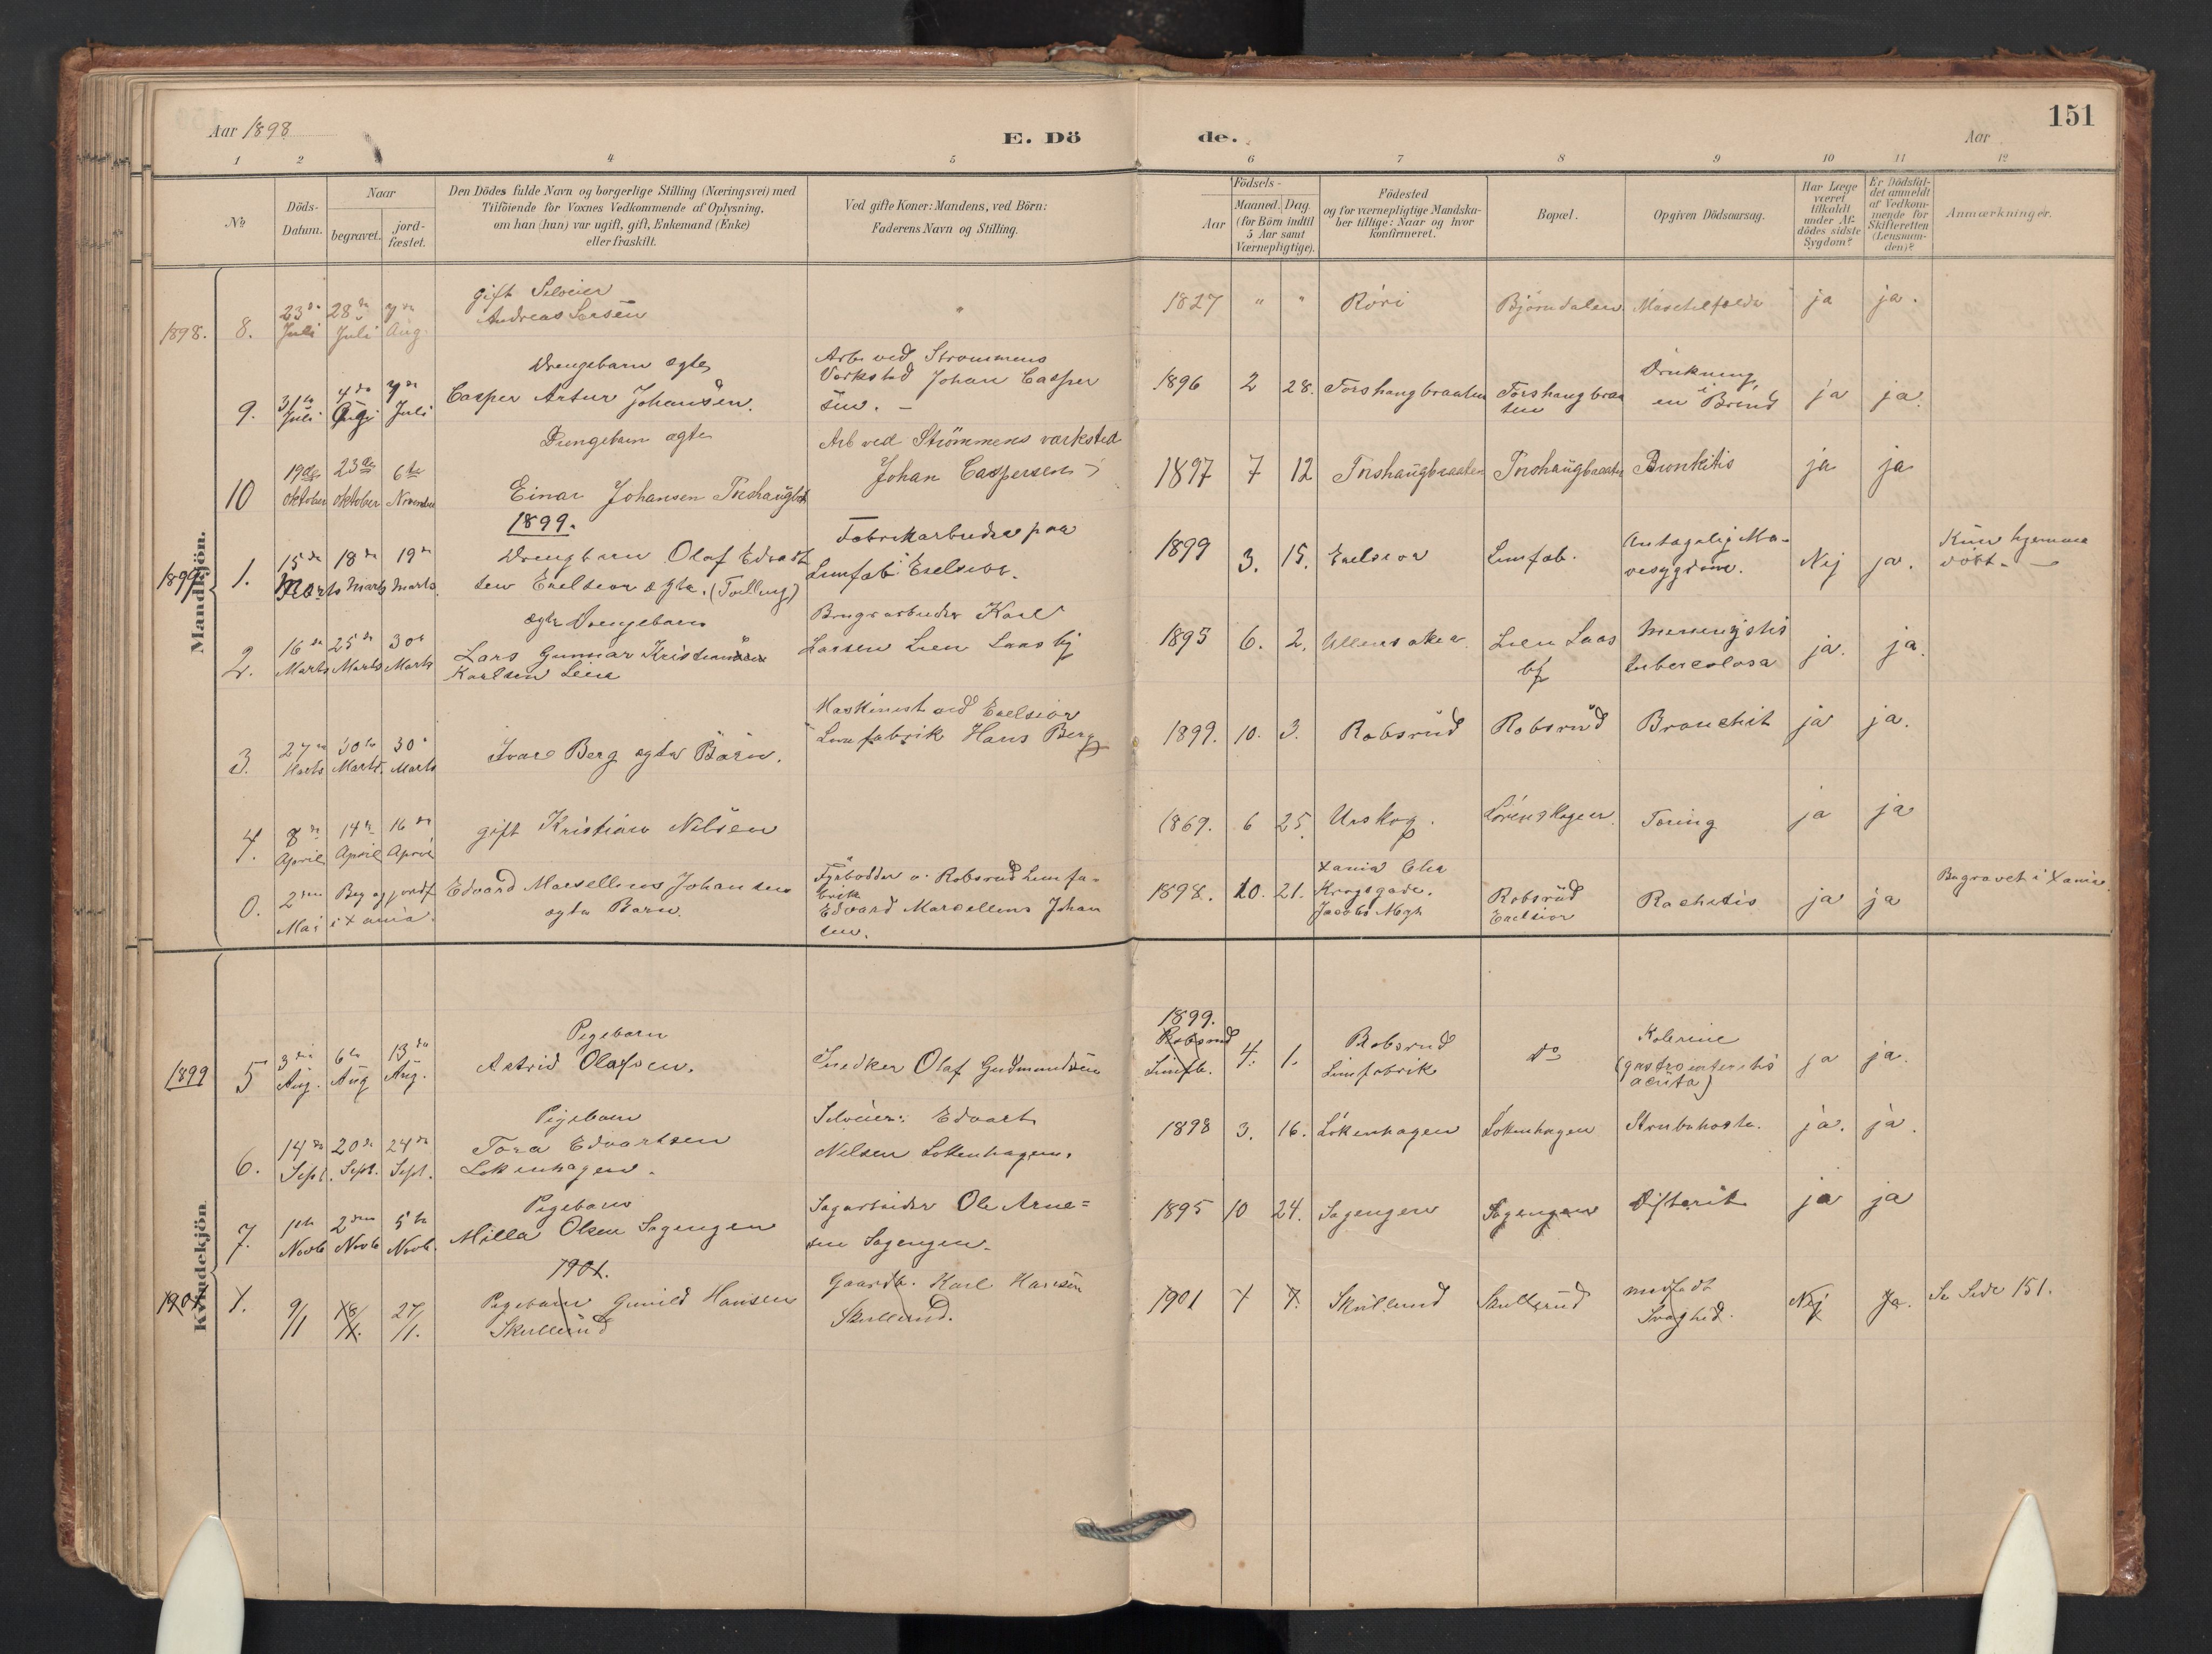 151
Aar 1898
E. Dö
de.
Aar
1
2
3
4
5
6
7
8
9
10
11
12
No
Döds-
Datum.
Naar
begravet.
jord-
fæstet.
Den Dödes fulde Navn og borgerlige Stilling (Næringsvei) med
Tilföiende for Voxnes Vedkommende af Oplysning,
om han (hun) var ugift, gift, Enkemand (Enke)
eller fraskilt.
Ved gifte Koner: Mandens, ved Börn:
Faderens Navn og Stilling.
Födsels-
Aar
Maaned. Dag.
(for Börn indtil
5 Aar samt
Værnepligtige).
Födested
og for værnepligtige Mandska-
ber tillige: Naar og hvor
konfirmeret.
Bopæl.
Opgiven Dödsaarsag.
Har Læge
været
tilkaldt
under Af-
dödes sidste
Sygdom?
Er Dödsfal-
det anmeldt
af Vedkom-
mende for
Skifteretten
(Lensman-
den)?
Anmærkninger.
Mandkjön.
1898.
8.
23de
Juli
28de
Juli
7de
Aug.
gift Selveier
Andreas
"
1827
"
"
Röri
Björndalen
ja
ja.
9.
31te
Juli
4de
Aug
7de
Juli
Drengebarn ægte
Casper Artur Johansen.
Arb. ved Strømmens
Værksted Johan Casper
sen. -
1896
2
28.
Torshaugbraaten
Torshaugbraa
ten
Drukning
i
en Brönd
ja
ja.
10
19de
Oktober
23de
Oktober
6te
November
Drengebarn ægte
Einar Johansen
Arb ved Strömmens værksted
Johan Caspersen
1897
7
12
Torshaugbraaten
Torshaugbraaten
Bronkitis
ja
ja
1899.
1899
1.
15de
Marts
18de
Marts
19de
Marts.
Drengbarn Olaf Edvart
sen Exelsior ægte. (Tvilling)
Fabrikarbeider paa
Limfab. Exelsior.
1899
3.
15.
Exelsior
Limfab.
Antagelig Ma-
vesygdom.
Nej
ja.
Kun hjemme
döbt. -
2.
16de
Marts
25de
Marts
30te
Marts
ægte Drengebarn
Lars Gunnar Kristian
Karlsen Lien
Brugsarbeider Karl
Larsen Lien Laasby
1895
6.
2.
Ullensaker
Lien Laas
by
Meningitis
tuberculosa
ja.
ja
3.
27de
Marts
30te
Marts.
30te
Marts
Ivar Berg ægte Barn.
Maskinist ved Exelsior
Limfabrik Hans Berg
1899.
10.
3.
Robsrud
Robsrud
Bronchit
ja
ja.
4.
8de
April
14de
April
16de
April
gift Kristian Nilsen
1869.
6
25.
Urskog.
Lörenskogen
Tæring
ja
ja
0.
2den
Mai
Beg og jordf
i Xania.
Edvard Marsellius Johansen
ægte Barn.
Fyrbödder v. Robsrud Limfa-
brik
Edvard Marcellius Johan
sen.
1898.
10.
21.
Xania Chr
Krogsgade.
Jacobs Mgh
Robsrud
Exelsior
Rachitis
ja
ja
Begravet i Xania.
Kvindekjön.
1899
5
3die
Aug.
6te
Aug
13de
Aug.
Pigebarn
Astrid Olafsen.
Snedker Olaf Gudmundsen
1899.
Robsrud
Limfb.
4.
1.
Robsrud
Limfabrik
do
Kolerine
(gastrointeritis
acuta)
ja
ja.
6.
14de
Sept.
20de
Sept.
24de
Sept.
Pigebarn
Tora Edvartsen
Lökenhagen.
Selveier: Edvart
Nilsen Lökenhagen.
1898
3.
16.
Lökenhagen
Lökenhagen
Strubehoste.
ja.
ja.
7.
1ste
Novb
2den
Novb
5te
Novb.
Pigebarn
Milla Olsen Sagengen
Sagarbeider Ole Arne=
sen Sagengen.
1895
10
24.
Sagengen
Sagengen
Difterit
ja
ja
1901.
1901
1.
9/1
18/1.
27/1.
Pigebarn Gunild Hansen
Skullerud
Gaardb. Karl Hansen
Skullerud.
1901
1
7.
Skullerud
Skullerud
medfødt
Svaghed.
Nej
Ja.
Se Side 151.